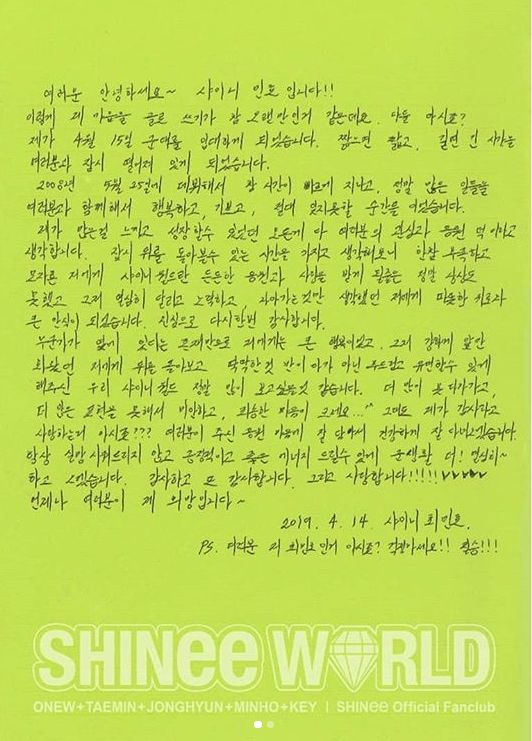 여러분 안녕하세요~ 샤이니 민호입니다!!
이렇게 제 마음을 글로 쓰기가 참 오랜만인거 같은데요. 다들 아시죠?
제가 4월 15일 군대를 입대하게 되었습니다. 짧으면 짧고, 길면 긴 시간을
여러분과 잠시 떨어져 있게 되었습니다.
2008년 5월 25일에 데뷔해서 참 시간이 빠르게 지나고, 정말 많은 일들을
여러분과 함께해서 행복하고, 기쁘고, 절대 잊지못할 순간을 얻었습니다.
제가 많은걸 느끼고 성장할수 있었던 모든게 다 여러분의 관심과 응원 덕이라고
생각합니다. 잠시 뒤를 돌아볼수 있는 시간을 가지고 생각해보니 한참 부족하고
모자른 저에게 샤이니월드란 든든한 응원과 사랑을 받게 될줄은 정말 상상도
못했고 그저 열심히 달리고 노력하고, 나아가는것만 생각했던 저에게 따뜻한 치료와
큰 안식이 되었습니다. 진심으로 다시한번 감사합니다.
누군가가 앞에 있다는 존재만으로 저에게는 큰 행복이었고, 그저 강하게 앞만
보았던 저에게 뒤를 돌아보고 딱딱한것 만이 아닌 부드럽고 유연할수 있게
해주신 우리 샤이니 월드 정말 많이 보고싶을것 같습니다. 더 많이 못 다가가고,
더 많은 표현을 못해서 미안하고, 죄송한 마음이 크네요...^^ 그래도 제가 감사하고
사랑하는거 아시죠??? 여러분이 주신 응원 마음에 잘 담아서 건강하게 잘 다녀오겠습니다.
항상 실망시켜드리지 않고 긍정적이고 좋은 에너지 드릴수 있게 군생활 더! 열심히~
하고 오겠습니다. 감사하고 또 감사합니다. 그리고 사랑합니다!!!!! ♥♥♥♥♥
언제나 여러분이 제 희망입니다~
2019. 4. 14. 샤이니 최민호.
PS. 여러분 저 최민호인거 아시죠? 걱정마세요!! 필승!!!
SHINee WORLD
ONEW+TAEMIN+JONGHYUN+MINHO+KEY | SHINee Official Fanclub